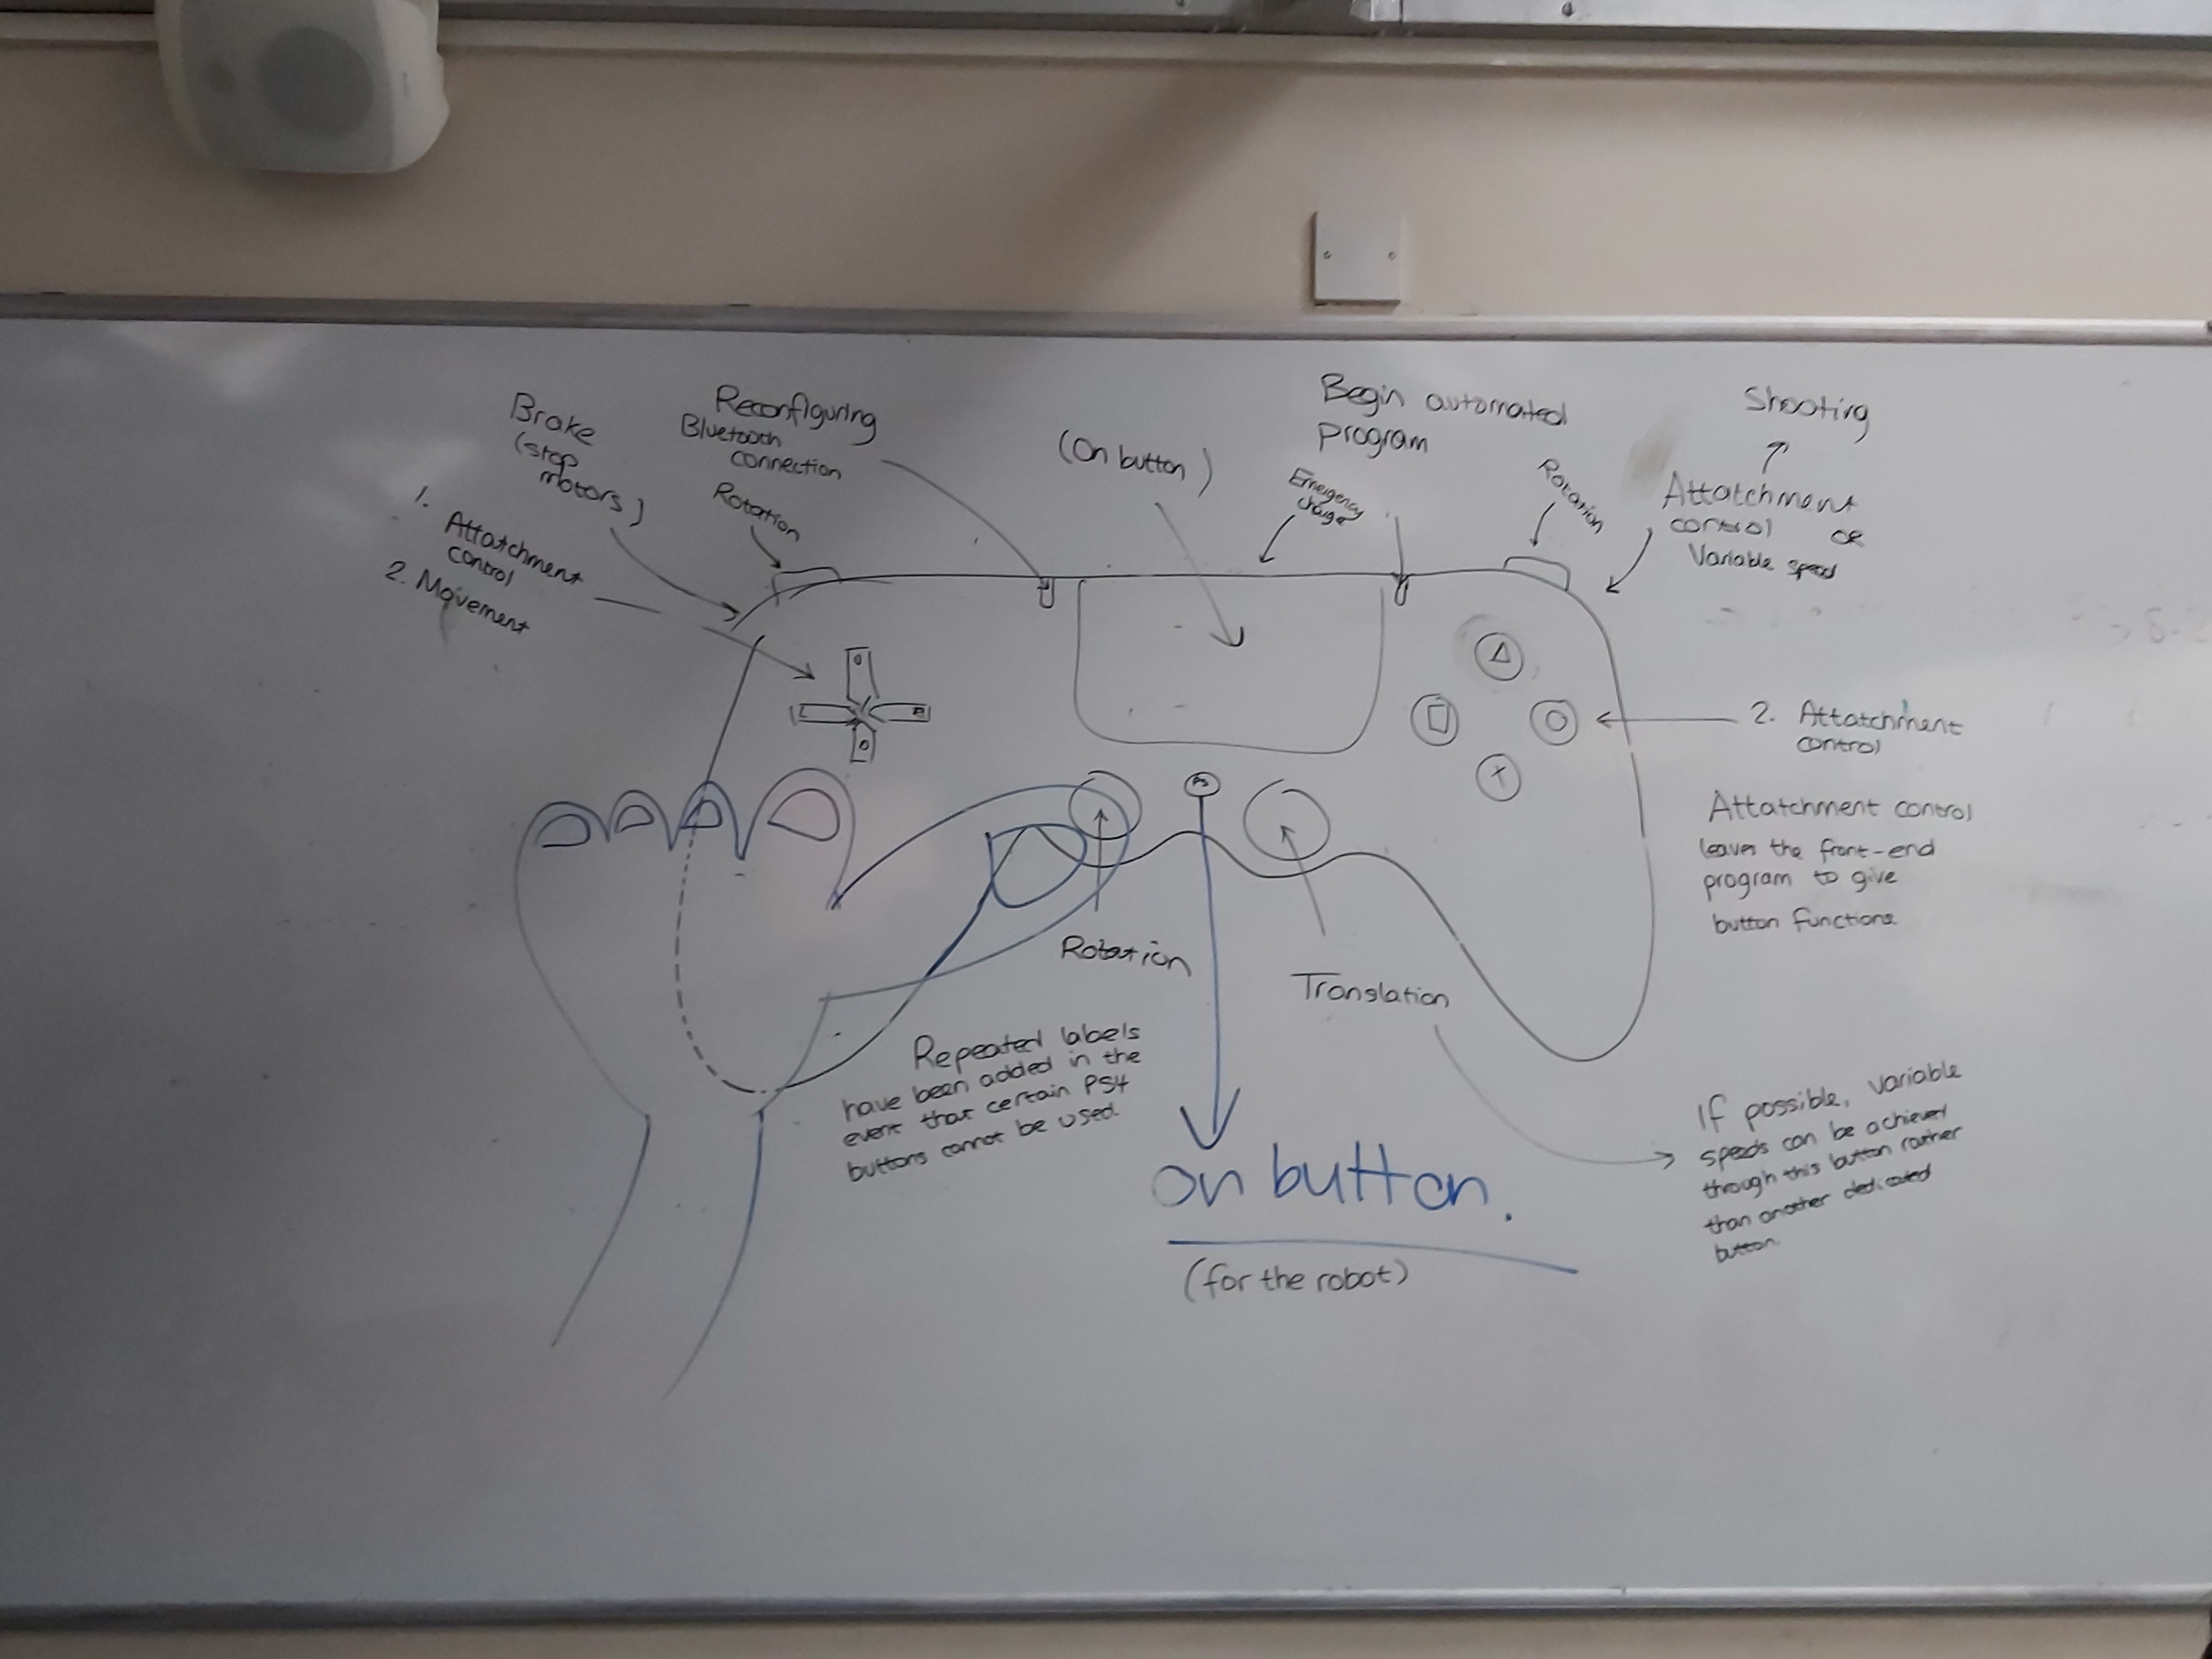 Brake
(stop
motors)
Reconfiguring
Bluetooth
connection
Rotation
1. Attatchment
control
2. Movement
(On button)
Begin automated
program
Emergency
charge
Rotation
Shooting
Attatchment
control or
Variable speed
2. Attatchment
control
Attatchment control
leaves the front-end
program to give
button functions.
PS
Rotation
Translation
Repeated labels
have been added in the
event that certain PS4
buttons cannot be used.
On button.
(for the robot)
If possible, variable
speeds can be achieved
through this button rather
than another dedicated
button.